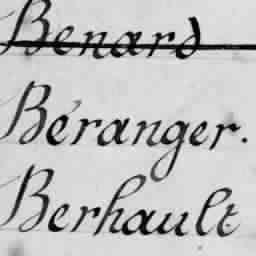 Benard
Béranger.
Berhault